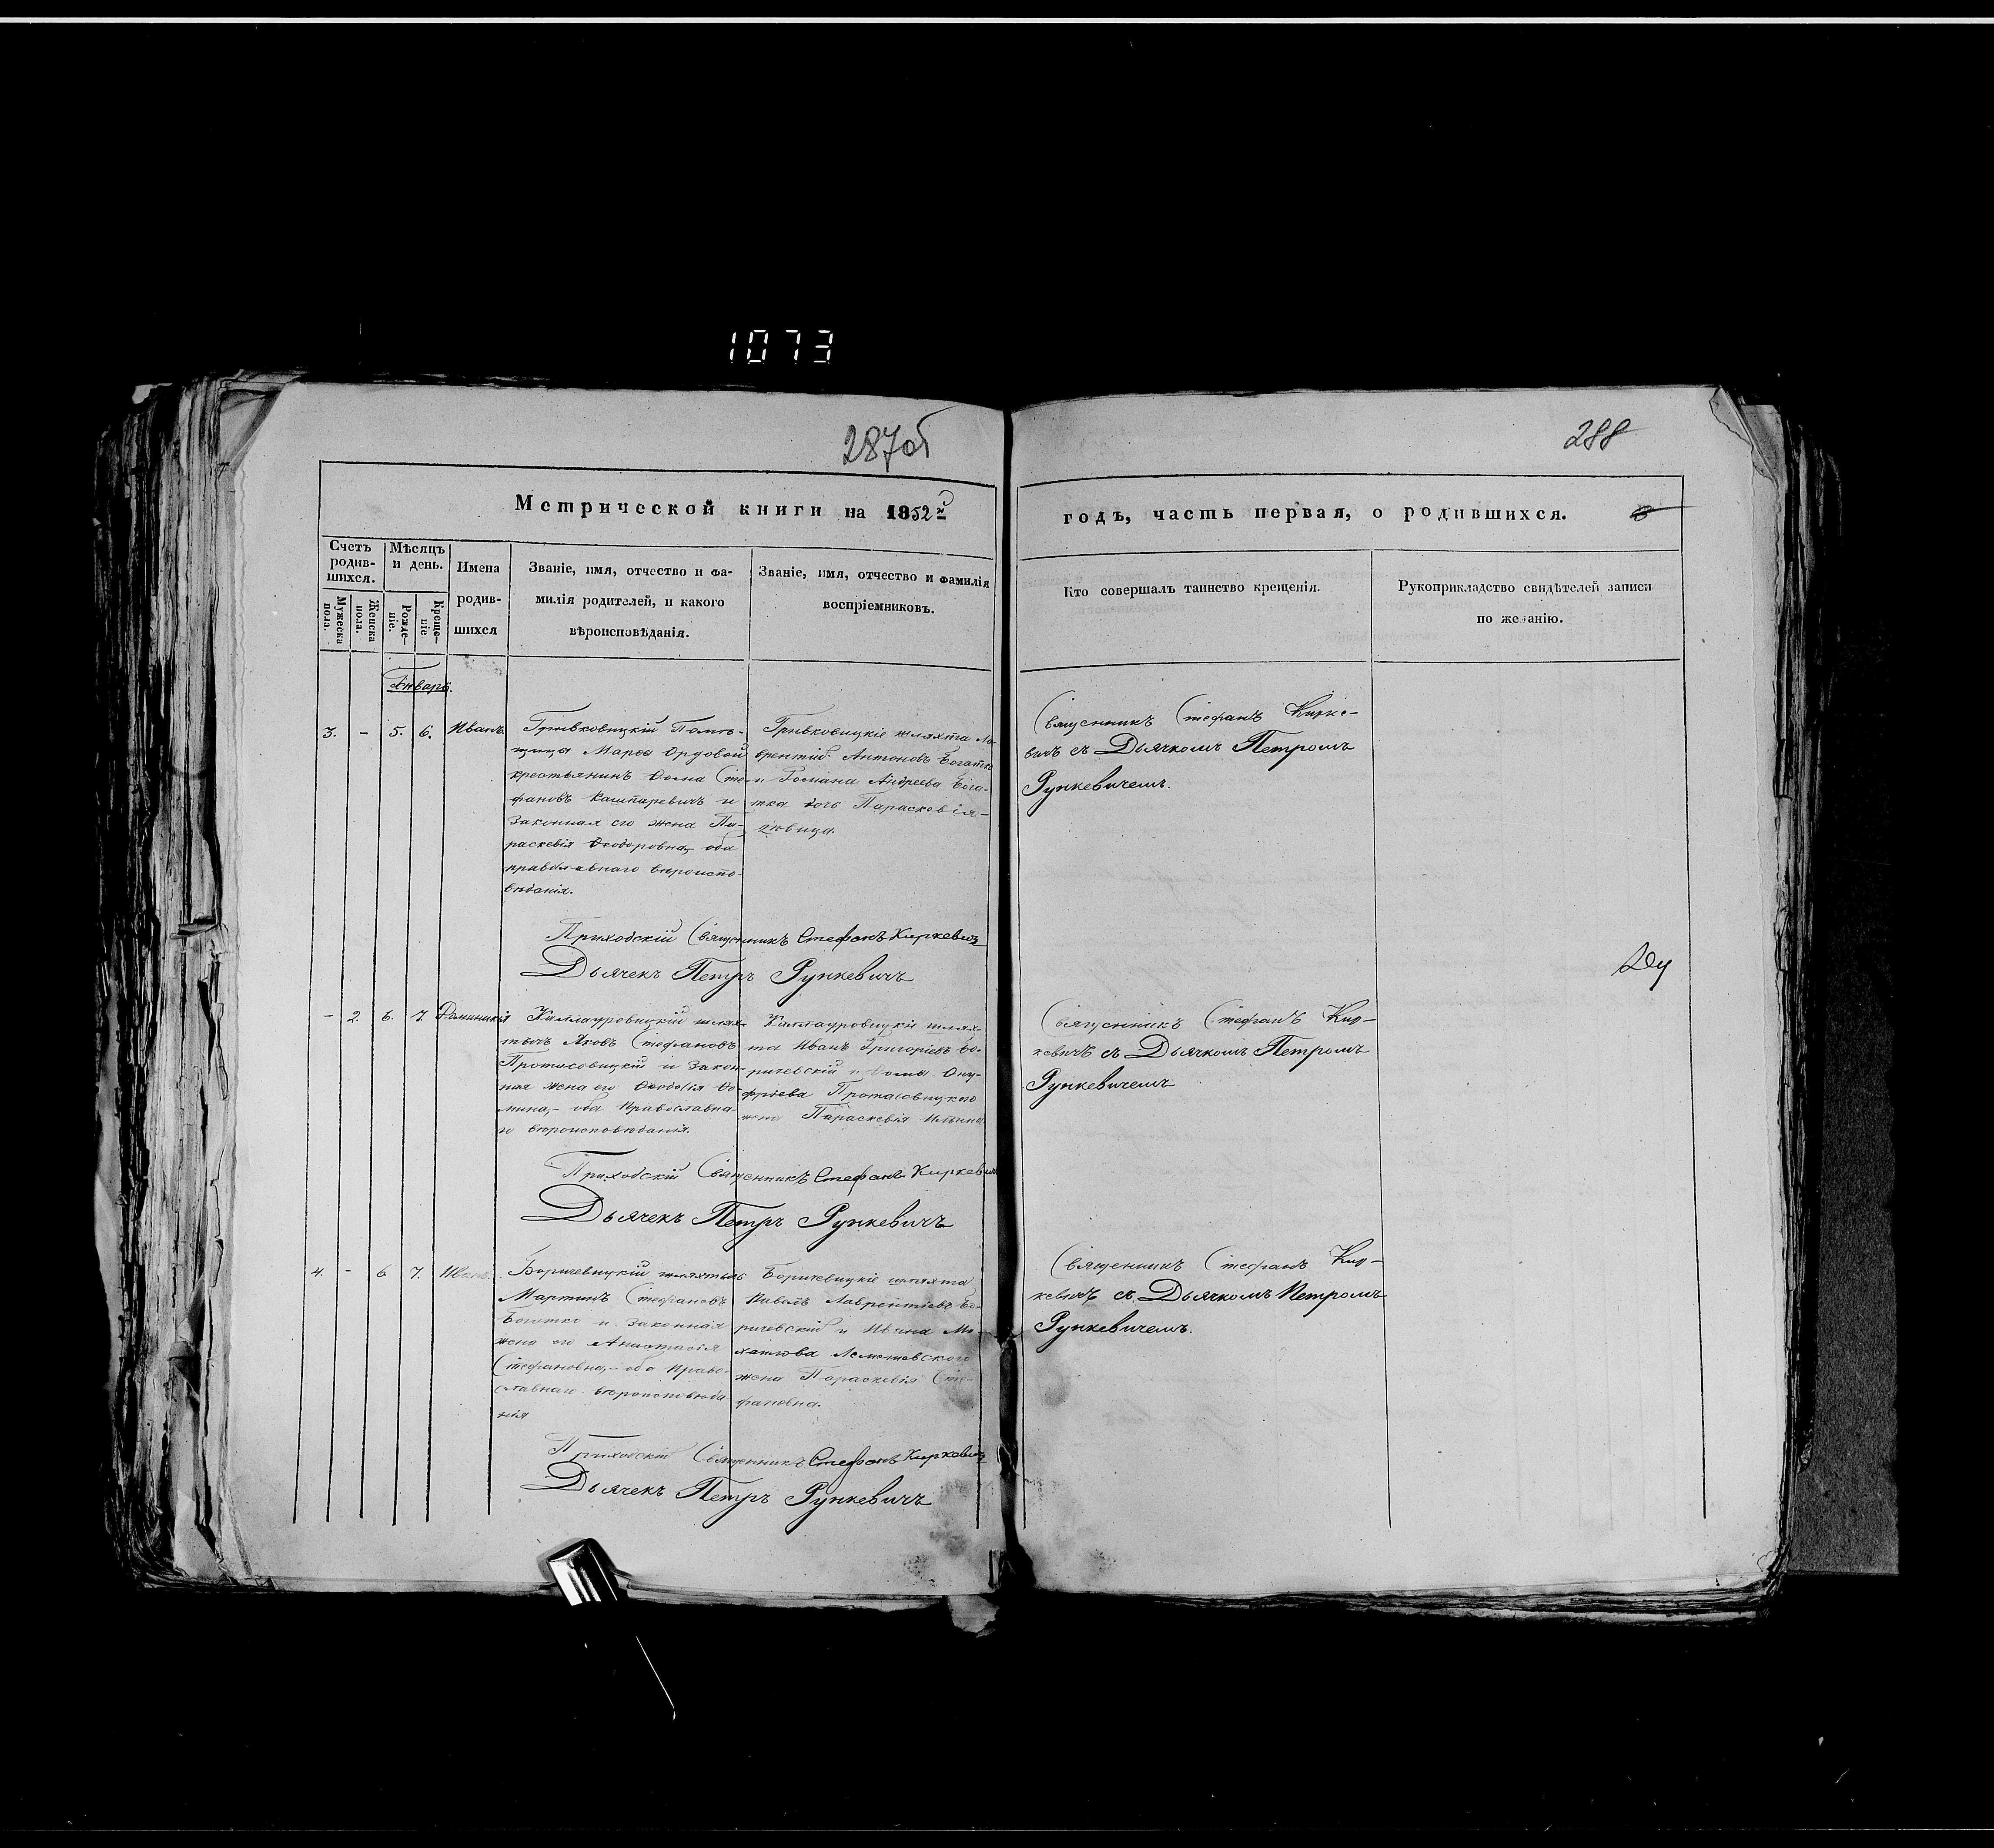 1073
287об
288
Метрической книги на 1852й
годъ, часть первая, о родившихся.
Счетъ родив-шихся.
Мѣсяцъ и день.
Имена родив-шихся
Званіе, имя, отчество и фа-
милія родителей, и какого
вѣроисповѣданія.
Званіе, имя, отчество и фамилія
воспріемниковъ.
Кто совершалъ таинство крещенія.
Рукоприкладство свидѣтелей записи
по желанію.
Мужеска пола.
Женска пола.
Рожде-ніе.
Креще-ніе
Январь.
3. - 5. 6. Иванъ
Грывковицкій Помѣ-
щицы Марсы Ордовой
крестьянинъ Ѳома Сте-
фановъ Кашпаревичъ и
законная его жена Па-
раскевія Ѳеодоровна, оба
православнаго вѣроиспо-
вѣданія.
Грывковицкіе шляхта Ла-
врентій Антоновъ Богатко
и Романа Андреева Бога-
тка дочь Парасковія-
дѣвица.
Священникъ Стефанъ Кирке-
вичъ съ Дьячкомъ Петромъ
Рункевичемъ.
Приходскій Священникъ Стефанъ Киркевичъ
Дьячекъ Петръ Рункевичъ
- 2. 6. 7. Доминикія
шлях-
тичъ Яковъ Стефановъ
Протасовицкій и закон-
ная жена его Ѳеодосія Ѳо-
мина,- оба Православна-
го вѣроисповѣданія.
шлях-
та Иванъ Григорьевъ Бо-
ричевскій и Ѳомы Ону-
фріева Протасовицкого
жена Параскевія Ильина.
Священникъ Стефанъ Кир-
кевичъ съ Дьячкомъ Петромъ
Рункевичемъ
Приходскій Священникъ Стефанъ Киркевичъ
Дьячекъ Петръ Рункевичъ
4. - 6 7. Иванъ.
Боричевицкій шляхтичъ
Мартинъ Стефановъ
Богатко и законная
жена его Анастасія
Стефановна,- оба Право-
славнаго вѣроисповѣда-
нія
Боричевицкіе шляхта
Павелъ Лаврентіевъ Бо-
ричевскій и Ивана Ми-
хайлова Лемешевского
жена Параскевія Сте-
фановна.
Священникъ Стефанъ Кир-
кевичъ съ Дьячкомъ Петромъ
Рункевичемъ.
Приходскій Священникъ Стефанъ Киркевичъ
Дьячекъ Петръ Рункевичъ